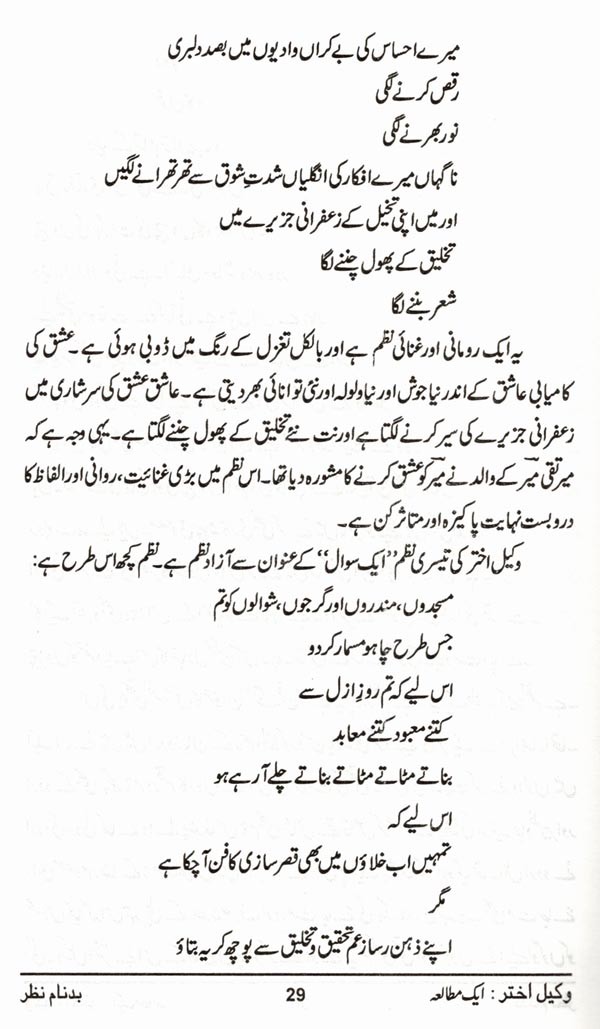 میرے احساس کی بے کراں وادیوں میں بصد دلبری
رقص کرنے لگی
نور بھرنے لگی
ناگہاں میرے افکار کی انگلیاں شدتِ شوق سے تھرتھرانے لگیں
اور میں اپنی تخیل کے زعفرانی جزیرے میں
تخلیق کے پھول چننے لگا
شعر بننے لگا
یہ ایک رومانی اور غنائی نظم ہے اور بالکل تغزل کے رنگ میں ڈوبی ہوئی ہے۔ عشق کی
کامیابی عاشق کے اندر نیا جوش اور نیا ولولہ اور نئی توانائی بھر دیتی ہے۔ عاشق عشق کی سرشاری میں
زعفرانی جزیرے کی سیر کرنے لگتا ہے اور نت نئے تخلیق کے پھول چننے لگتا ہے۔ یہی وجہ ہے کہ
میر تقی میرؔ کے والد نے میرؔ کو عشق کرنے کا مشورہ دیا تھا۔ اس نظم میں بڑی غنائیت، روانی اور الفاظ کا
دروبست نہایت پاکیزہ اور متاثر کن ہے۔
وکیل اختر کی تیسری نظم ”ایک سوال“ کے عنوان سے آزاد نظم ہے۔ نظم کچھ اس طرح ہے:
مسجدوں، مندروں اور گرجوں، شوالوں کو تم
جس طرح چاہو مسمار کر دو
اس لیے کہ تم روزِ ازل سے
کتنے معبود کتنے معابد
بناتے مٹاتے مٹاتے بناتے چلے آرہے ہو
اس لیے کہ
تمہیں اب خلاؤں میں بھی قصر سازی کا فن آچکا ہے
مگر
اپنے ذہن رسا زعم تحقیق و تخلیق سے پوچھ کر یہ بتاؤ
وکیل اختر : ایک مطالعہ 29 بدنام نظر